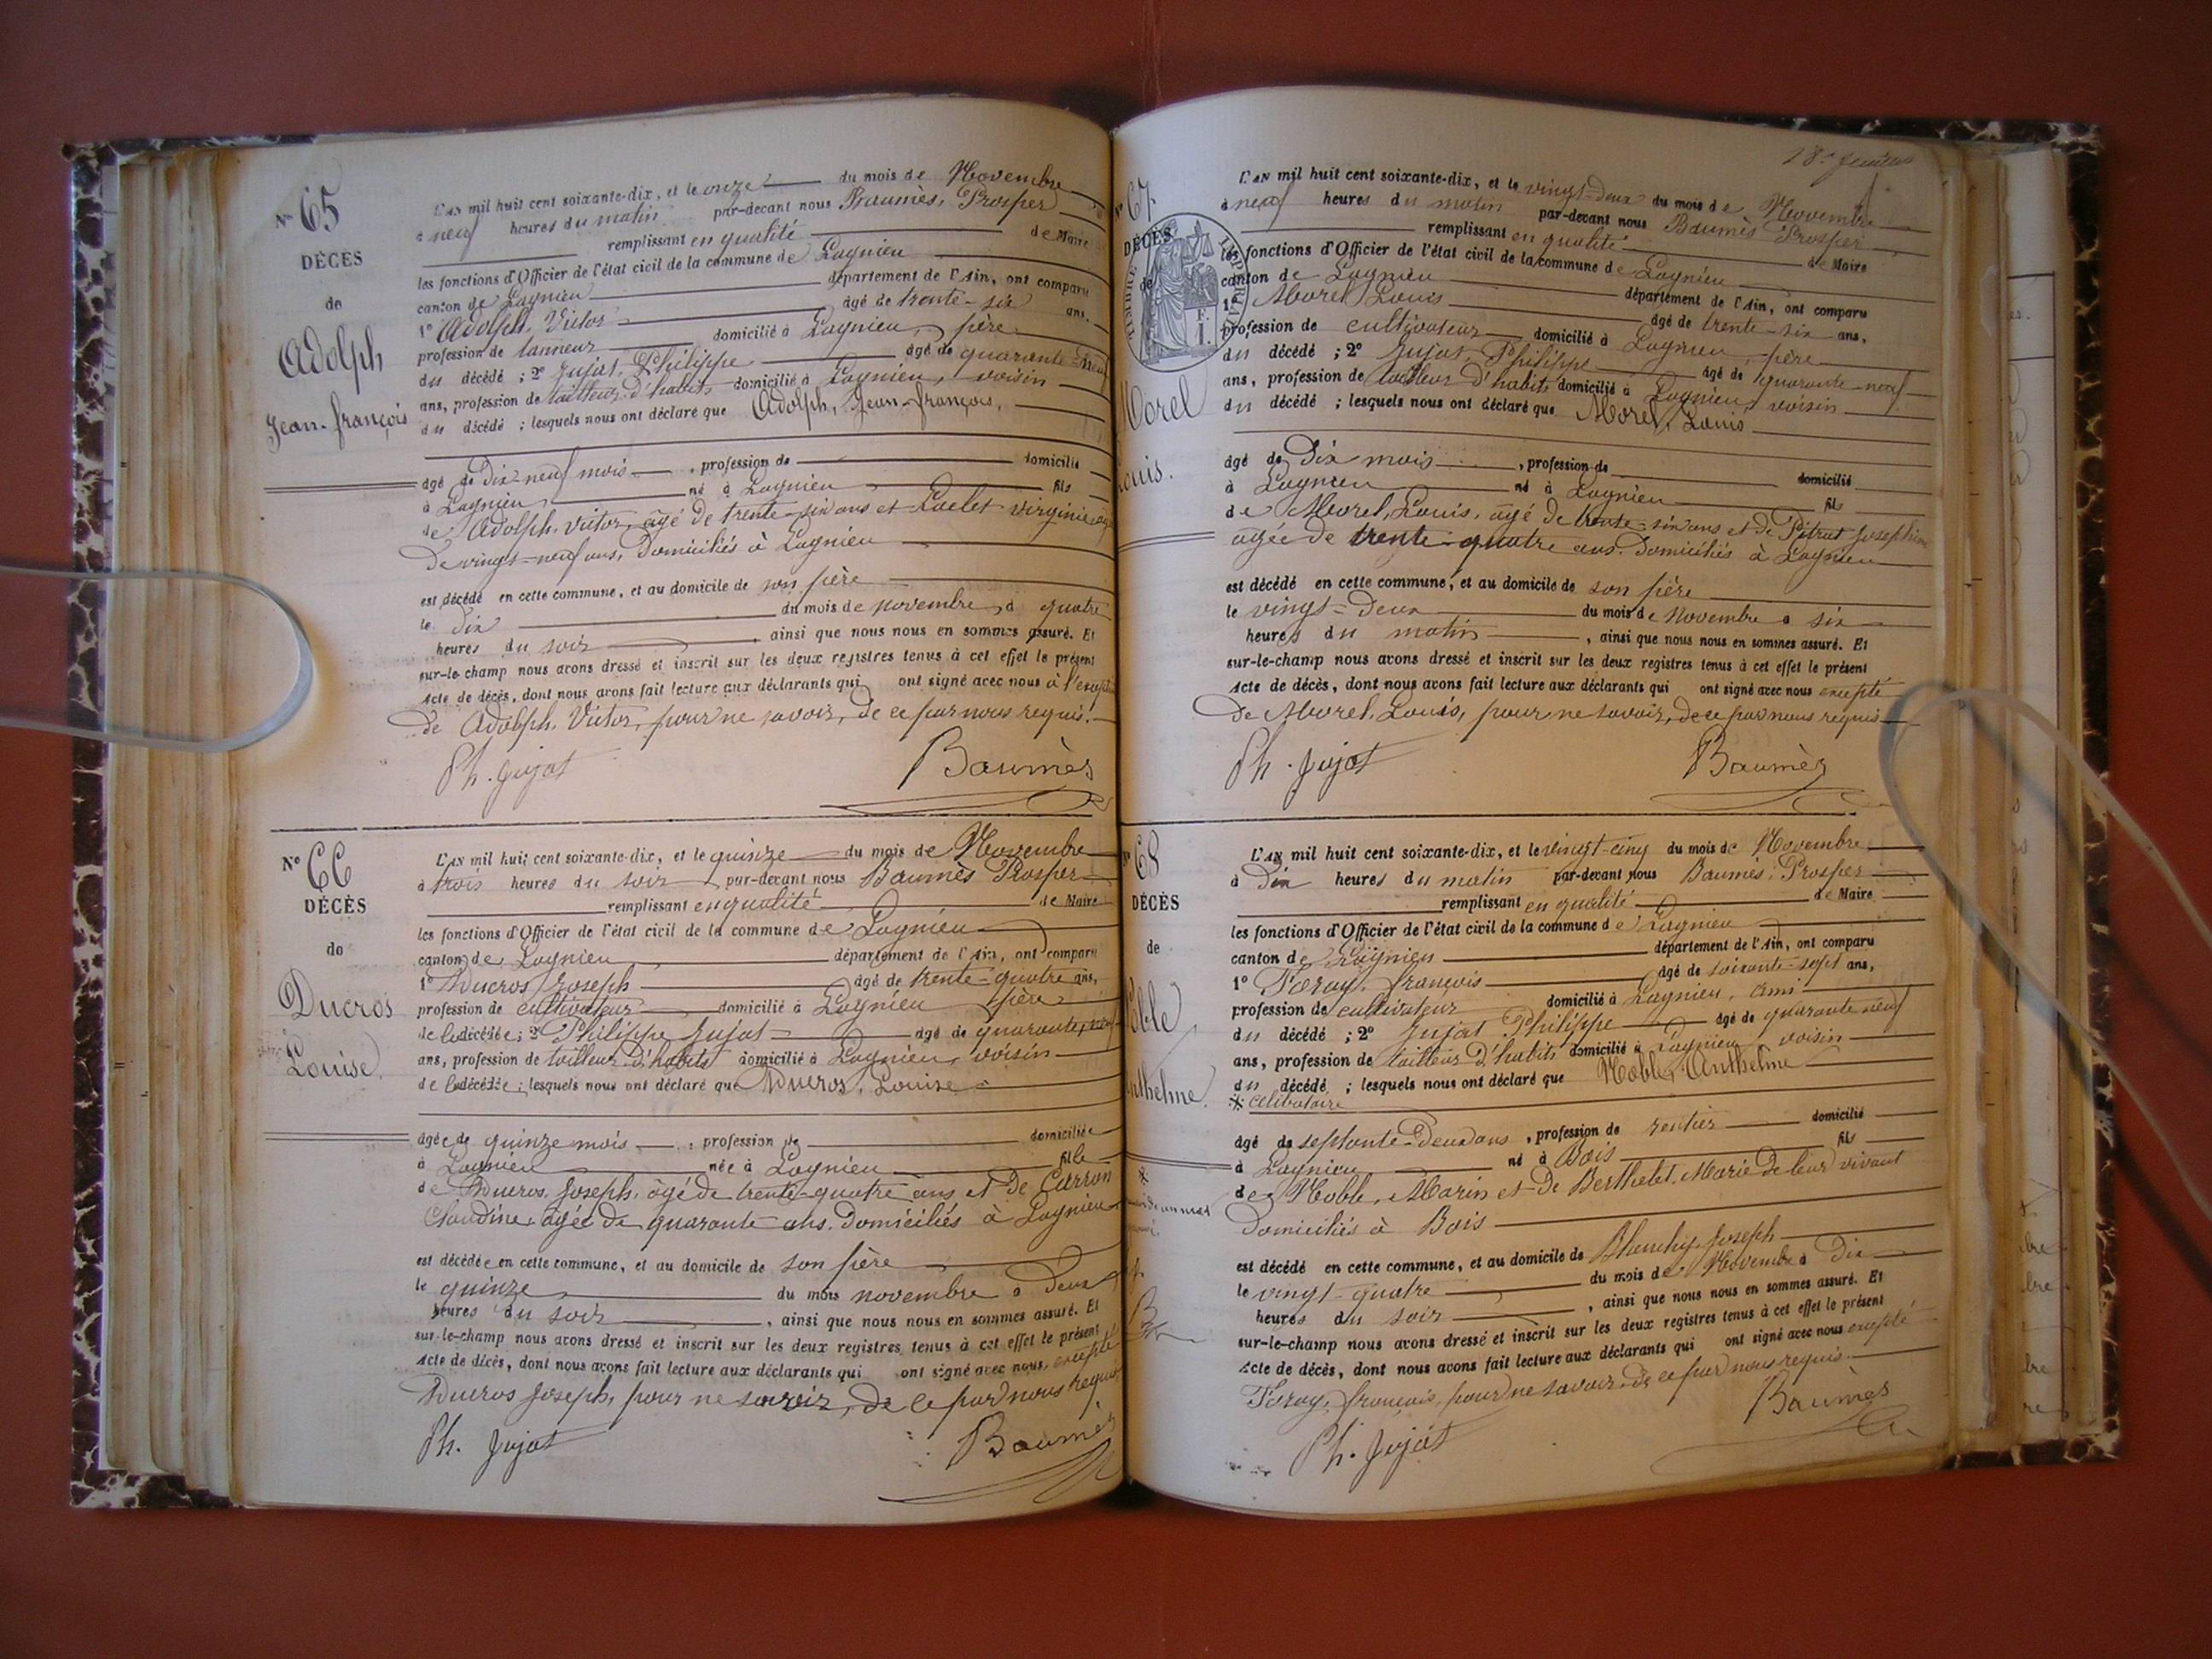 Nº 65
DÉCÈS
de
Adolph
Jean-françois
L'AN mil huit cent soixante-dix, et le onze du mois de Novembre
à neuf heures du matin par-devant nous Baumès, Prosper
remplissant en qualité de Maire
les fonctions d'Officier de l'état civil de la commune de Lagnieu
canton de Lagnieu département de l'Ain, ont comparu
1º Adolph, Victor âgé de trente-six ans,
profession de tanneur domicilié à Lagnieu, père
du décédé ; 2º Jujat, Philippe âgé de quarante-neuf
ans, profession de tailleur d'habits domicilié à Lagnieu, voisin
du décédé ; lesquels nous ont déclaré que Adolph, Jean-françois,
âgé de Dix-neuf mois , profession de domicilié
à Lagnieu né à Lagnieu fils
de Adolph, Victor, âgé de trente-six ans et Virginie
De vingt-neuf ans, Domiciliés à Lagnieu
est décédé en cette commune, et au domicile de son père
le dix du mois de novembre, à quatre
heures du soir ainsi que nous nous en sommes assuré. Et
sur-le-champ nous avons dressé et inscrit sur les deux registres tenus à cet effet le présent
Acte de décès, dont nous avons fait lecture aux déclarants qui ont signé avec nous à l'
de Adolph, Victor, pour ne savoir, de ce par nous requis.
Ph. Jujat Baumès
Nº 66
DÉCÈS
de
Ducros
Louise.
L'AN mil huit cent soixante-dix, et le quinze du mois de Novembre
à trois heures du soir, par-devant nous Baumès Prosper
remplissant en qualité de Maire
les fonctions d'Officier de l'état civil de la commune de Lagnieu
canton de Lagnieu département de l'Ain, ont comparu
1º Ducros Joseph âgé de trente-quatre ans,
profession de cultivateur domicilié à Lagnieu père
de la décédée ; 2º Philippe Jujat âgé de quarante-neuf
ans, profession de tailleur d'habits domicilié à Lagnieu, voisin
de la décédée ; lesquels nous ont déclaré que Ducros, Louise
âgée de quinze mois , profession de domiciliée
à Lagnieu née à Lagnieu fille
de Ducros, Joseph, âgé de trente-quatre ans et De Carron
Claudine, âgée de quarante ans. Domiciliés à Lagnieu
est décédée en cette commune, et au domicile de son père
le quinze du mois novembre à deux
heures du soir , ainsi que nous nous en sommes assuré. Et
sur-le-champ nous avons dressé et inscrit sur les deux registres tenus à cet effet le présent
Acte de décès, dont nous avons fait lecture aux déclarants qui ont signé avec nous, excepté
Ducros Joseph, pour ne savoir, de ce par nous requis
Ph. Jujat Baumès
67
DÉCÈS
de
Morel
Louis.
L'AN mil huit cent soixante-dix, et le vingt-deux du mois de Novembre
à neuf heures du matin par-devant nous Baumès Prosper
remplissant en qualité de Maire
les fonctions d'Officier de l'état civil de la commune de Lagnieu
canton de Lagnieu département de l'Ain, ont comparu
1º Morel Louis âgé de trente-six ans,
profession de cultivateur domicilié à Lagnieu, père
du décédé ; 2º Jujat, Philippe âgé de quarante-neuf
ans, profession de tailleur d'habits domicilié à Lagnieu, voisin
du décédé ; lesquels nous ont déclaré que Morel, Louis
âgé de Dix mois , profession de domicilié
à Lagnieu né à Lagnieu fils
de Morel, Louis, âgé de trente-six ans et de Pitrat Joséphine
âgée de trente-quatre ans. Domiciliés à Lagnieu
est décédé en cette commune, et au domicile de son père
le vingt-Deux du mois de Novembre à six
heures du matin , ainsi que nous nous en sommes assuré. Et
sur-le-champ nous avons dressé et inscrit sur les deux registres tenus à cet effet le présent
Acte de décès, dont nous avons fait lecture aux déclarants qui ont signé avec nous excepté
De Morel, Louis, pour ne savoir, de ce par nous requis
Ph. Jujat Baumès
68
DÉCÈS
de
Noble
Anthelme.
L'AN mil huit cent soixante-dix, et le vingt-cinq du mois de Novembre
à Dix heures du matin par-devant nous Baumès, Prosper
remplissant en qualité de Maire
les fonctions d'Officier de l'état civil de la commune de Lagnieu
canton de Lagnieu département de l'Ain, ont comparu
1º Féray, françois âgé de soixante-sept ans,
profession de cultivateur domicilié à Lagnieu, ami
du décédé ; 2º Jujat Philippe âgé de quarante-neuf
ans, profession de tailleur d'habits domicilié à Lagnieu voisin
du décédé ; lesquels nous ont déclaré que Noble, Anthelme
* célibataire
âgé de septante-Deux ans , profession de rentier domicilié
à Lagnieu né à Bois fils
de Noble, Marin et De Berthelet, Marie De leur vivant
Domiciliés à Bois
est décédé en cette commune, et au domicile de Blanchy Joseph
le vingt-quatre du mois de Novembre à Dix
heures du soir , ainsi que nous nous en sommes assuré. Et
sur-le-champ nous avons dressé et inscrit sur les deux registres tenus à cet effet le présent
Acte de décès, dont nous avons fait lecture aux déclarants qui ont signé avec nous excepté
Féray, françois, pour ne savoir, de ce par nous requis.
Ph. Jujat Baumès